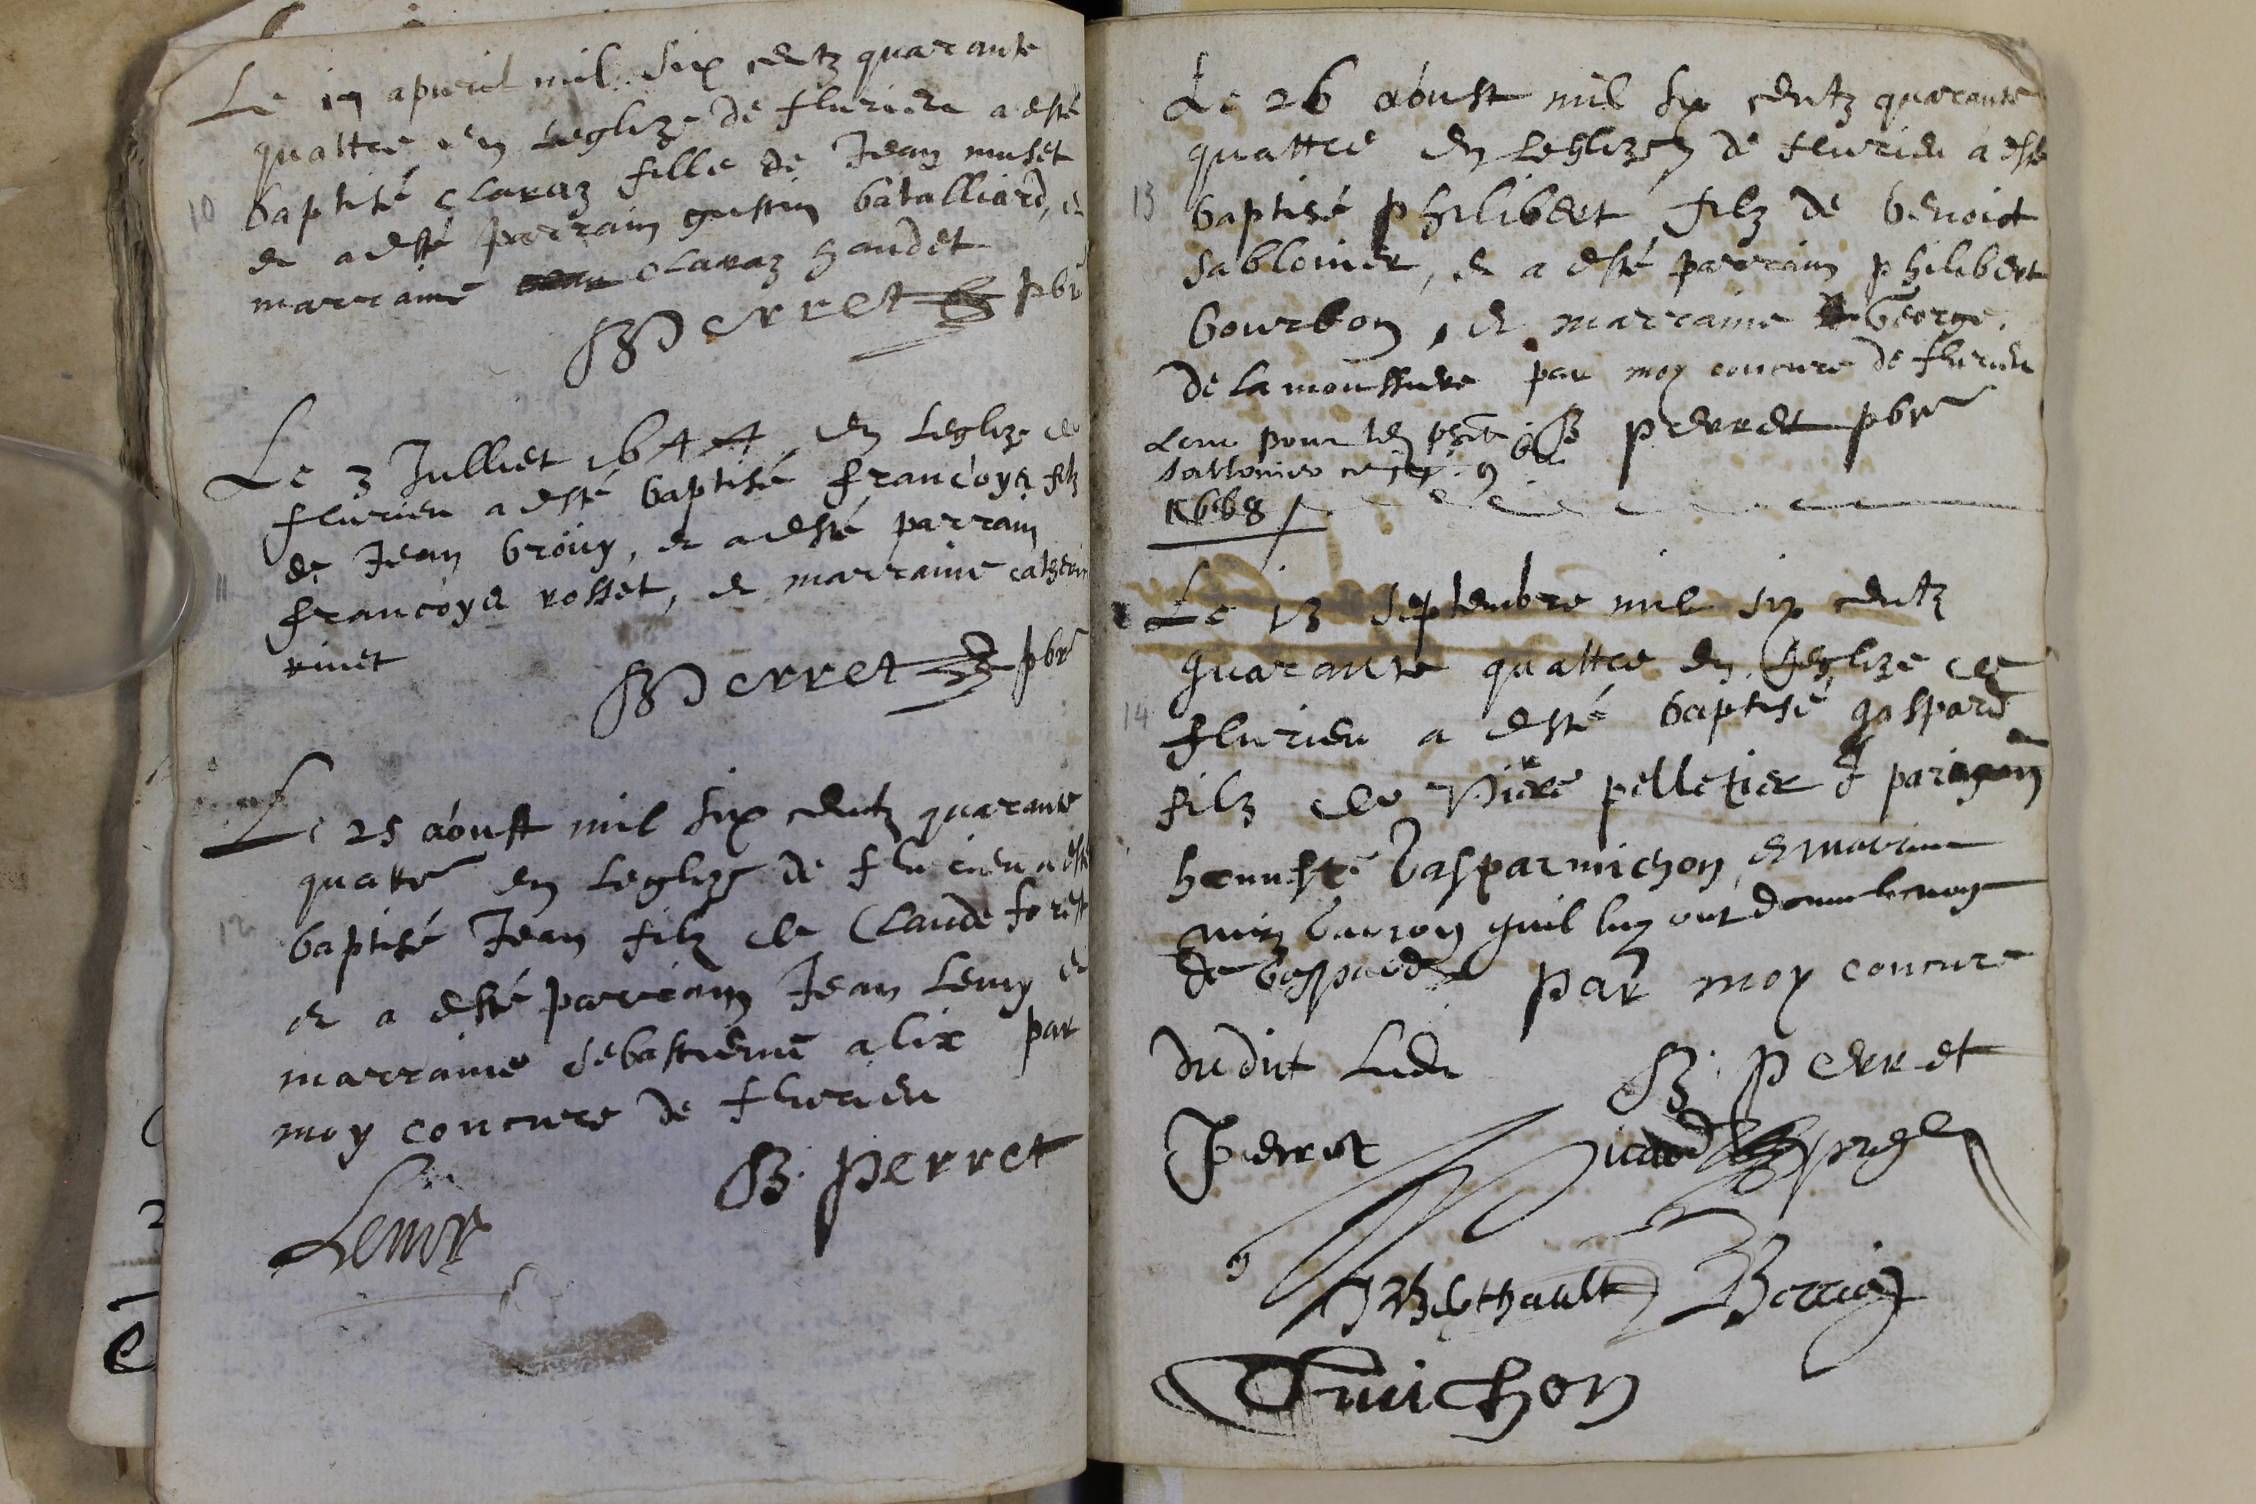 Le 19 apvril mil six centz quarante
quattre en Leglize de flurieu a esté
10
baptisé Claraz fille de Jean muset
et a esté parrain gustin batalliard, et
marraine Claraz haudet
B Perret pbr
Le 3 Julliet 1644 en Leglize de
flurieu a esté baptisé françoys filz
de Jean brouy, et a esté parrain
11
françoys rosset, et marraine catheri
rivet
B Perret pbr
Le 25 aoust mil six centz quarante
quattre en Leglize de flurieu a esté
12
baptisé Jean filz de Claude forest
et a esté parrain Jean Lemy et
marraine sebastienne alix par
moy concure de flurieu
B. Perret
Le 26 aoust mil six centz quarante
quattre en Leglize de flurieu a esté
13
baptisé philibert filz de benoict
sablonier, et a esté parrain philibert
bourbon, et marraine George
de la moussiere par moy concure de flurieu
B perret pbr
Levé pour led
1668
Le 13 septembre mil six centz
quarante quattre en Leglize de
14
flurieu a esté baptisé gaspard
filz de Piere pelletier et paragon
honneste Gaspar michon et marrine
qui luy ont donne le nom
de Gaspard par moy concure
dudit Lieu B. Perret
Pierret
michon